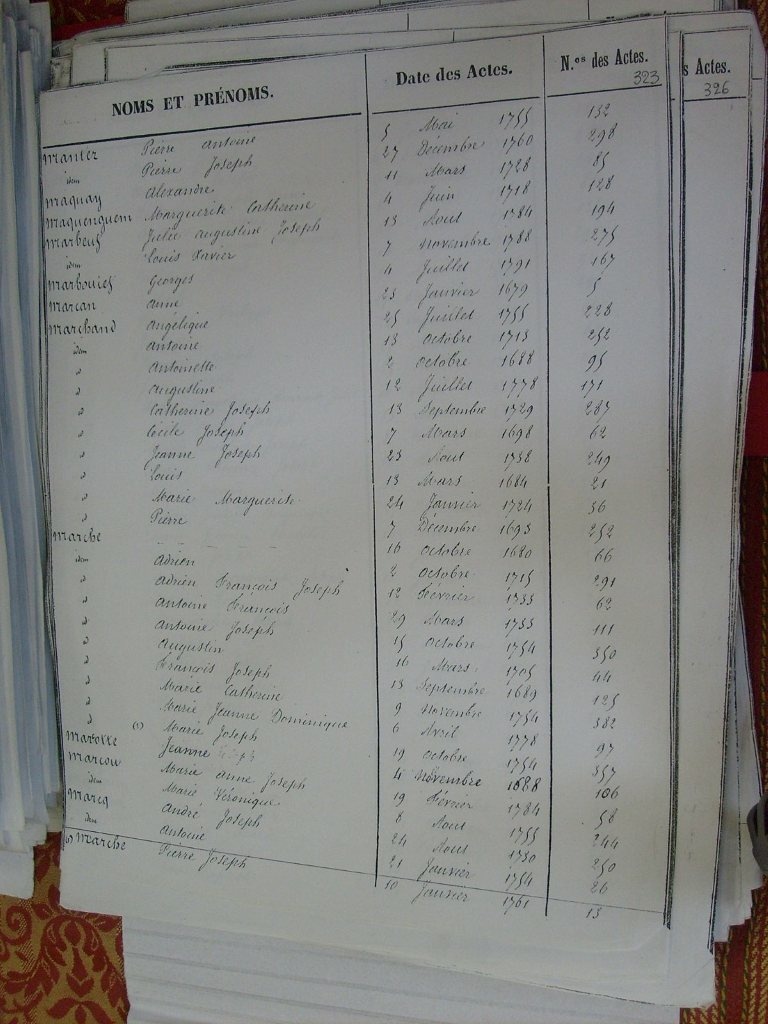 NOMS ET PRÉNOMS. Date des Actes. N.os des Actes. s Actes.
323 326
Manier Pierre Antoine 5 Mai 1755 132
idem Pierre Joseph 27 Décembre 1760 298
Maquay Alexandre 11 Mars 1728 85
Maquenquem Marguerite Catherine 4 Juin 1718 128
Marbeuf Julie Augustine Joseph 13 Aout 1784 194
idem Louis Xavier 7 Novembre 1788 275
Georges 4 Juillet 1791 167
Marcan Anne 23 Janvier 1679 5
Marchand Angélique 25 Juillet 1755 228
idem Antoine 13 Octobre 1713 252
d Antoinette 2 Octobre 1688 95
d Augustine 12 Juillet 1778 171
d Catherine Joseph 13 Septembre 1729 287
d Cécile Joseph 7 Mars 1698 62
d Jeanne Joseph 23 Aout 1738 249
d Louis 13 Mars 1684 21
d Marie Marguerite 24 Janvier 1724 36
d Pierre 7 Décembre 1693 252
Marche
idem Adrien 16 Octobre 1680 66
d Adrien François Joseph 2 Octobre 1715 291
d Antoine François 12 Février 1733 62
d Antoine Joseph 29 Mars 1733 111
d Augustin 15 Octobre 1754 350
d François Joseph 16 Mars 1705 44
d Marie Catherine 13 Septembre 1689 125
d Marie Jeanne Dominique 9 Novembre 1754 382
d (1) Marie Joseph 6 Avril 1778 97
Marotte Jeanne 19 Octobre 1754 357
Marcou Marie Anne Joseph 4 Novembre 1688 106
idem Marie Véronique 19 Février 1784 58
Marcq André Joseph 8 Aout 1755 244
idem Antoine 24 Aout 1730 250
21 Janvier 1754 26
(1) Marche Pierre Joseph 10 Janvier 1761 13